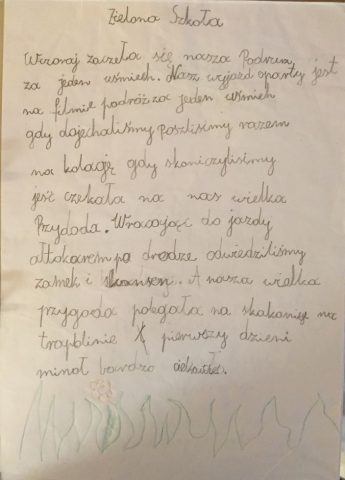 Zielona Szkoła
Wczoraj zaczeła się nasza Podruz
za jeden uśmiech. Nasz wyjazd oparty jest
na filmie podróż za jeden uśmiech
gdy dojechaliśmy poszliśmy razem
na kolację gdy skoniczyliśmy
jeść czekała na nas wielka
Przygoda. Wracając do jazdy
ałtokarem po drodze odwiedziliśmy
zamek i skansen. A nasza wielka
przygoda polegała na skakanie na
trapolinie pierwszy dzieni
minoł bardzo